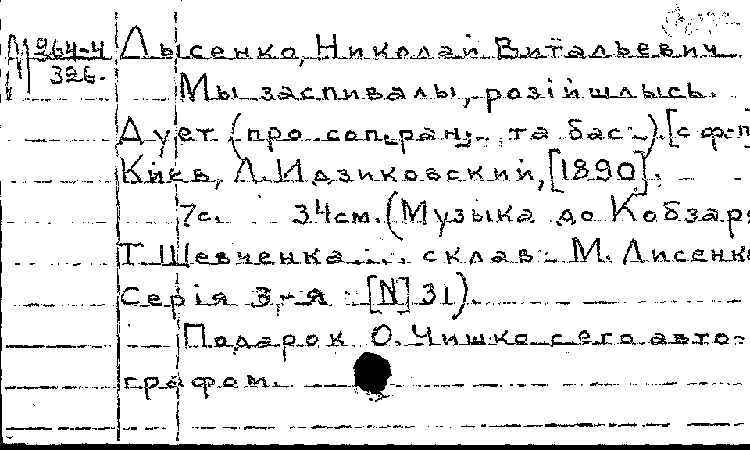 М 964-4
326.
Лысенко, Николай Витальевич
Мы заспивалы, розійшлысь.
Дует (про сопран: та бас:). [с ф-п
Киев, Л. Идзиковский, [1890].
7с. 34см. (Музыка до Кобзаря
Т. Шевченка... склав: М. Лисенко
Серія 3-я [N] 31).
Подарок О. Чишко с его авто-
графом.